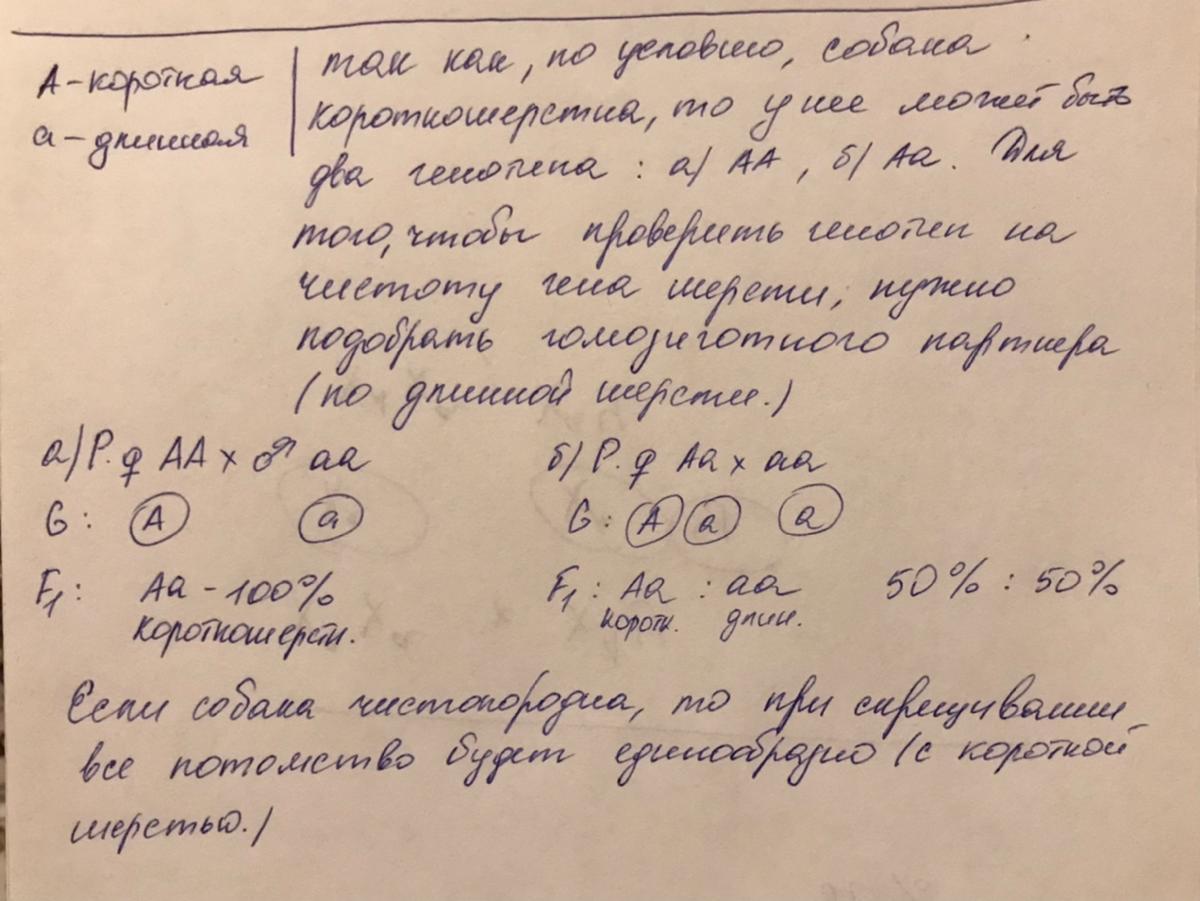 А – короткая
а – длинная
так как, по условию, собака
короткошерстна, то у нее может быть
два генотипа: а) АА, б) Аа. Для
того, чтобы проверить генотип на
чистоту гена шерсти, нужно
подобрать гомозиготного партнера
(по длинной шерсти.)
а) Р. ♀ АА х ♂ аа
G: А а
F₁: Аа - 100%
короткошерстн.
б) Р. ♀ Аа х аа
G: А а а
F₁: Аа : аа 50% : 50%
коротк. длин.
Если собака чистопородна, то при скрещивании
все потомство будет единообразно (с короткой
шерстью.)